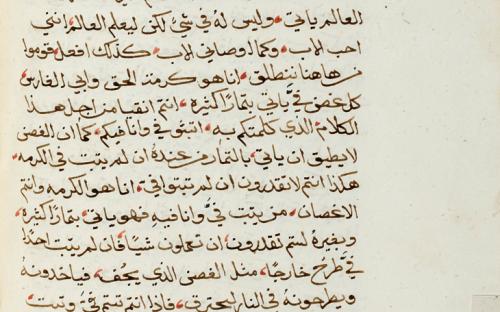 العالم ياتي وليس له في شي لكن ليعلم العالم انني
احب الاب وكما اوصاني الاب كذلك افعل قوموا
من هاهنا ننطلق انا هو كرمة الحق وابي الغارس
كل غصن فيّ ياتي بثمارٍ كثيرة انتم انقيا من اجل هذا
الكلام الذي كلمتكم به اثبتو في وانا فيكم كما ان الغصن
لا يطيق ان ياتي بالثمار من عنده ان لم يثبت في الكرمه
هكذا انتم لا تقدرون ان لم تثبتوا في انا هو الكرمه وانتم
الاغصان من يثبت في وانا فيه فهو ياتي بثمارٍ كثيرة
وبغيري لستم تقدرون ان تعملون شياً فان لم يثبت احدًا
في طرح خارجًا مثل الغصن الذي يجف فياخذونه
ويطرحونه في النار ليحترق فاذا انتم ثبتم فيّ وثبت